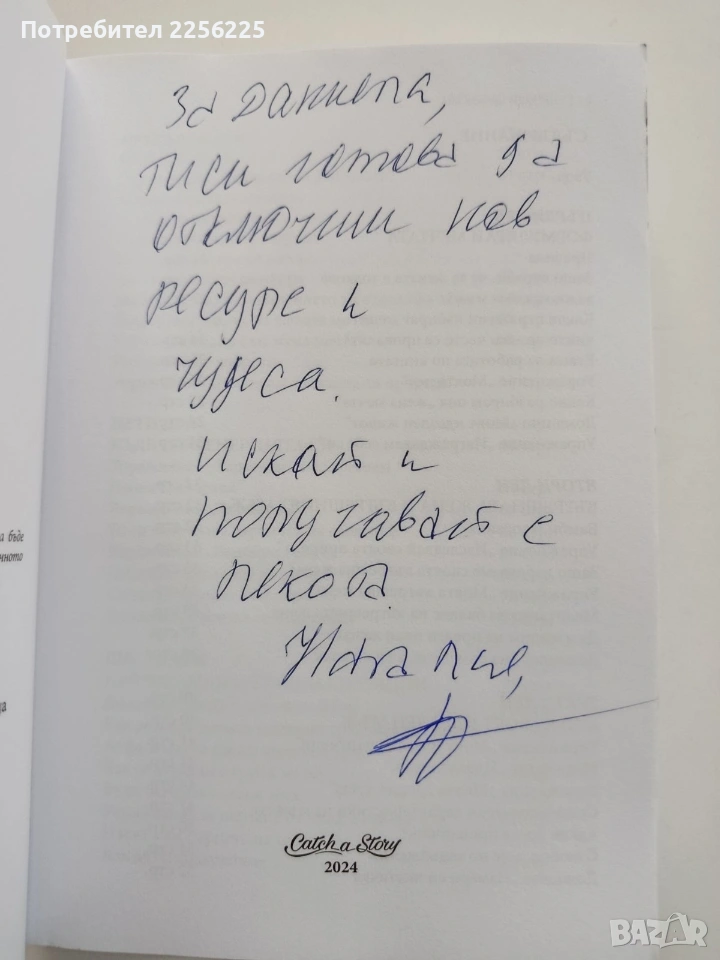 Потребител 2256225
За Даниела,
ти си готова да
отключиш нов
ресурс и
чудеса.
Искай и
получавай с
лекота.
Наталия,
а бъде
чното
ца
Catch a Story
2024
BAZAR